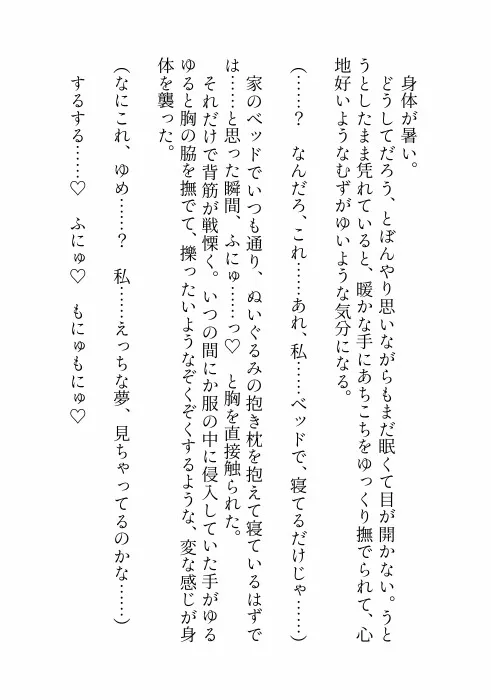 身体が暑い。
どうしてだろう、とぼんやり思いながらもまだ眠くて目が開かない。うと
うとしたまま凭れていると、暖かな手にあちこちをゆっくり撫でられて、心
地好いようなむずがゆいような気分になる。
(……?　なんだろ、これ……あれ、私……ベッドで、寝てるだけじゃ……)
家のベッドでいつも通り、ぬいぐるみの抱き枕を抱えて寝ているはずで
は……と思った瞬間、ふにゅ……っ♡　と胸を直接触られた。
それだけで背筋が戦慄く。いつの間にか服の中に侵入していた手がゆる
ゆると胸の脇を撫でて、擽ったいようなぞくぞくするような、変な感じが身
体を襲った。
(なにこれ、ゆめ……?　私……えっちな夢、見ちゃってるのかな……)
するする……♡　ふにゅ♡　もにゅもにゅ♡